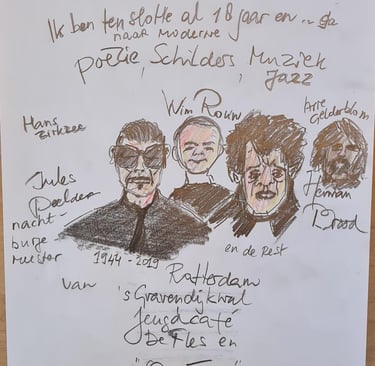 Ik ben tenslotte al 18 jaar en ... ga
naar moderne
poëzie, Schilders Muziek
, Jazz
Wim Rouw
Arie
Gelderblom
Hans
Zirkzee
Jules
Deelder
nacht-
burge
meester
1944-2019
Herman
Brood
en de Rest
van
Rotterdam
's Gravendijkwal
Jeugdcafé
De Fles en